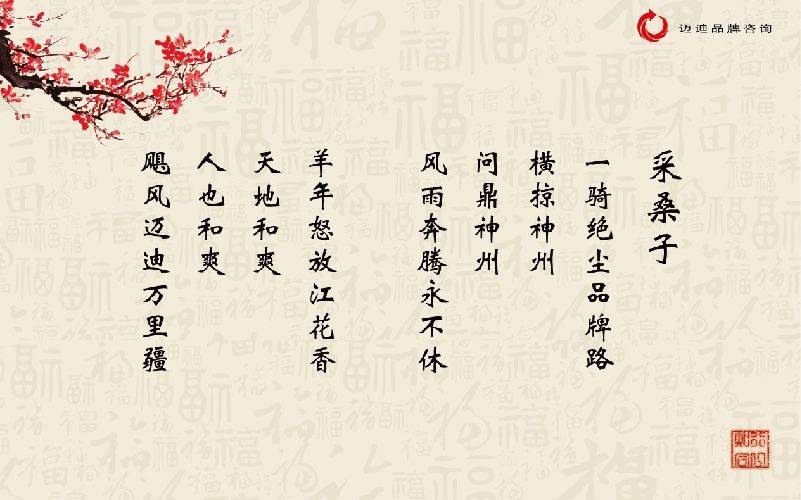 迈迪品牌咨询
采桑子
一骑绝尘品牌路
横掠神州
问鼎神州
风雨奔腾永不休
羊年怒放江花香
天地和爽
人也和爽
飓风迈迪万里疆